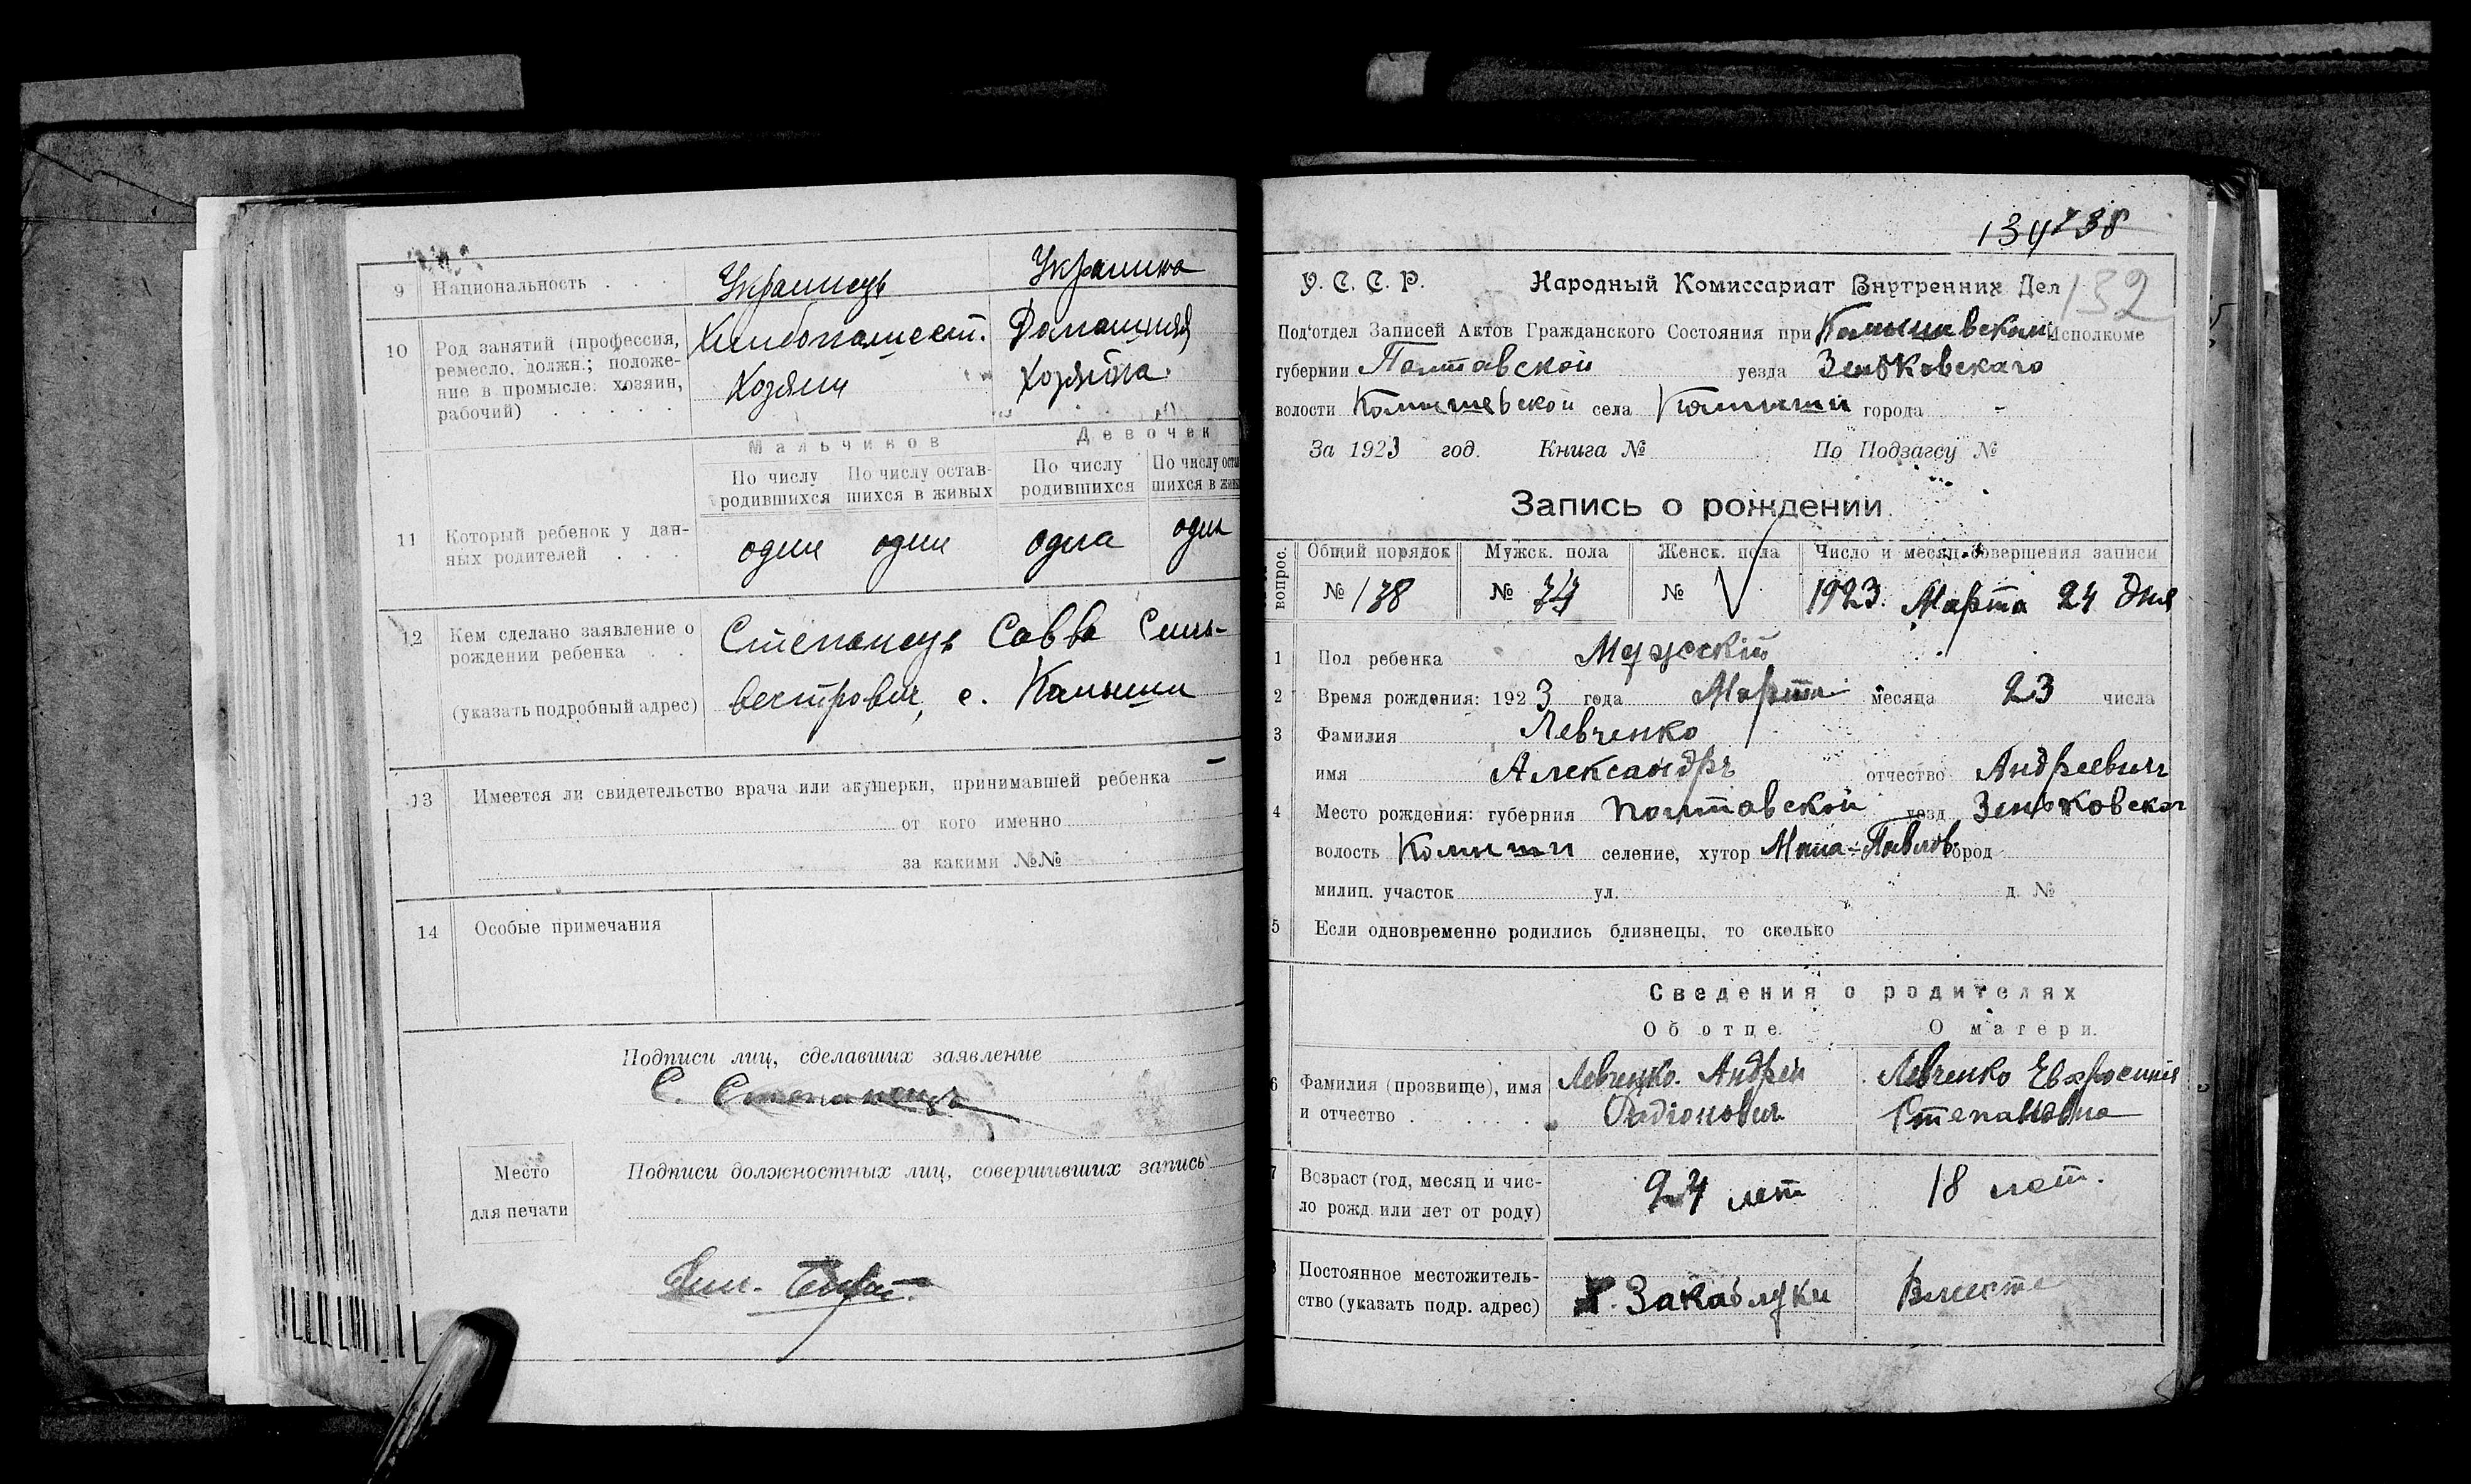 9 Национальность . . . Украинецъ Украинка
10 Род занятий (профессия, Хлебопашест. Домашняя
ремесло, должн.; положе-
ние в промысле: хозяин, Хозяин Хозяйка.
рабочий) . . . . . .
Мальчиков Девочек
По числу По числу остав- По числу По числу оста
родившихся шихся в живых родившихся шихся в жив
11 Который ребенок у дан-
ных родителей . . . один один одна одна
12 Кем сделано заявление о Степанецъ Савва Силь-
рождении ребенка . .
(указать подробный адрес) вестрович, с. Камыши
13 Имеется ли свидетельство врача или акушерки, принимавшей ребенка —
от кого именно
за какими №№
14 Особые примечания
Подписи лиц, сделавших заявление
С. Степанецъ
Место Подписи должностных лиц, совершивших запись
для печати
138
132
У. С. С. Р. Народный Комиссариат Внутренних Дел
Под'отдел Записей Актов Гражданского Состояния при Камышевском Исполкоме
губернии Полтавской уезда Зеньковскаго
волости Камышевской села Камыши города -
За 1923 год. Книга № По Подзагсу №
Запись о рождении.
вопрос. Общий порядок Мужск. пола Женск. пола Число и месяц совершения записи
№ 138 № 74 № 1923. Марта 24 дня
1 Пол ребенка Мужскій
2 Время рождения: 1923 года Марта месяца 23 числа
3 Фамилия Левченко
имя Александръ отчество Андреевич
4 Место рождения: губерния Полтавской уезд Зеньковског
волость Камыши селение, хутор город
милиц. участок ул. д. №
5 Если одновременно родились близнецы, то сколько
Сведения о родителях
Об отце. О матери.
6 Фамилия (прозвище), имя Левченко. Андрей Левченко Евфросиния
и отчество . . . . . . Радіонович Степановна
7 Возраст (год, месяц и чис- 24 лет 18 лет.
ло рожд или лет от роду)
Постоянное местожитель-
ство (указать подр. адрес) Х. Закаблуки Вместе